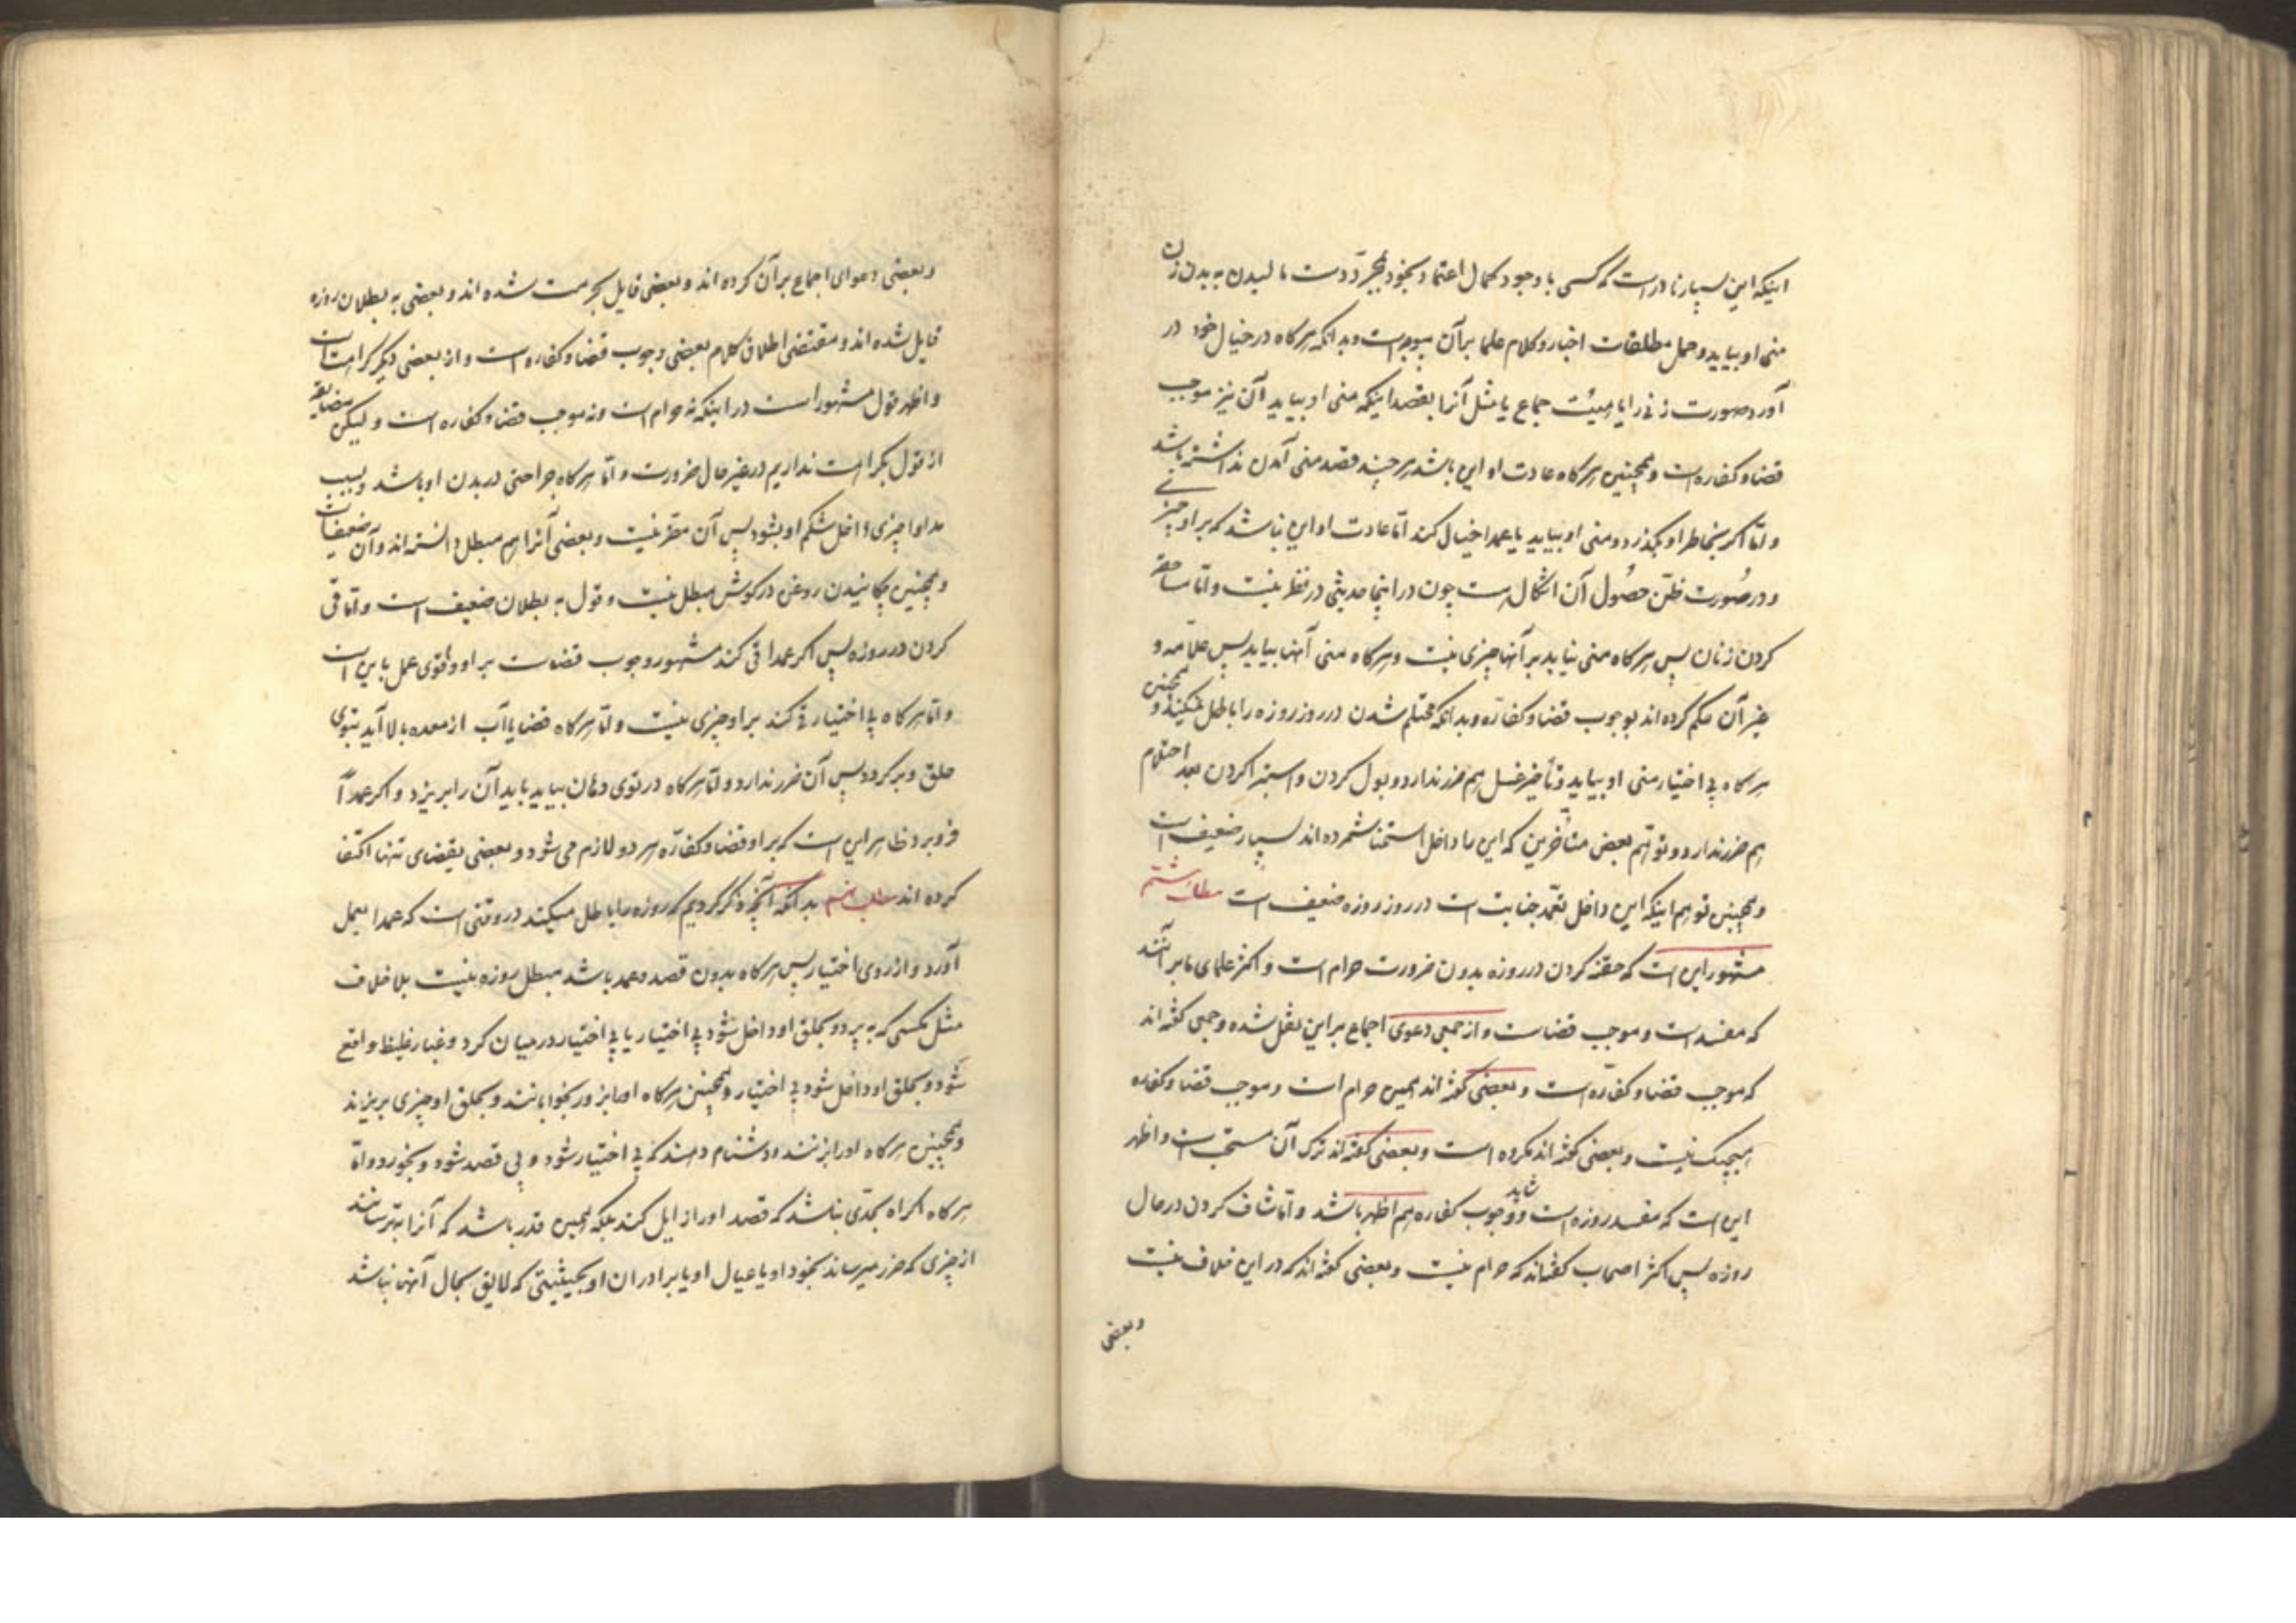 اینکه این بسیار نادر است که کسی با وجود کمال اعتماد بخود بمجرّد دست مالیدن به بدن زن
منی او بیاید و حمل مطلقات اخبار و کلام علما بر آن بیوجه است و بدانکه هرکاه در خیال خود در
آورد صورت زنی را یا هیئت جماع یا مثل آنرا بقصد اینکه منی او بیاید آن نیز موجب
قضا و کفاره است و همچنین هرکاه عادت او این باشد هر چند قصد منی آمدن نداشته باشد
و امّا اکر بخاطر او بکذرد و منی او بیاید یا عمدا خیال کند امّا عادت او این نباشد که بر او چیزی
و در صُورت ظنّ حصُول آن اشکال است چون در اینجا حدیثی در نظر نیست و امّا مساحقه
کردن زنان پس هرکاه منی نیاید بر آنها چیزی نیست و هرکاه منی آنها بیاید پس علاّمه و
غیر آن حکم کرده‌اند بوجوب قضا و کفّاره و بدانکه محتلم شدن در روز روزه را باطل نمیکند و همچنین
هرکاه بی اختیار منی او بیاید و تأخیر غسل هم ضرر ندارد و بول کردن و استبرا کردن بعد احتلام
هم ضرر ندارد و توهّم بعض متأخرین که این را داخل استمنا شمرده اند بسیار ضعیف است
و همچنین توهم اینکه این داخل تعمّد جنابت است در روز روزه ضعیف است مطلب هشتم
مشهور این است که حقنه کردن در روزه بدون ضرورت حرام است و اکثر علمای ما بر آنند
که مفسد است و موجب قضاست و از جمعی دعوی اجماع بر این نقل شده و جمعی کفته اند
که موجب قضا و کفّاره است و بعضی کفته اند همین حرام است و موجب قضا و کفاره
هیچیک نیست و بعضی کفته اند مکروه است و بعضی کفته اند ترک آن مستحب است و اظهر
این است که مفسد روزه است و شاید وجوب کفاره هم اظهر باشد و امّا شاف کردن در حال
روزه پس اکثر اصحاب کفته‌اند که حرام نیست و بعضی کفته اند که در این خلاف نیست
و بعضی
و بعضی دعوای اجماع بر آن کرده اند و بعضی قایل بحرمت شده اند و بعضی به بطلان روزه
قایل شده اند و مقتضی اطلاق کلام بعضی وجوب قضا و کفاره است و از بعضی دیکر کراهت است
و اظهر قول مشهور است در اینکه نه حرام است و نه موجب قضا و کفاره است و لیکن مضایقه
از قول بکراهت نداریم در غیر حال ضرورت و امّا هرکاه جراحتی در بدن او باشد و بسبب
مداوا چیزی داخل شکم او بشود پس آن مضرّ نیست و بعضی آنرا هم مبطل دانسته اند و آن ضعیف است
و همچنین چکانیدن روغن در کوش مبطل نیست و قول به بطلان ضعیف است و امّا قی
کردن در روزه پس اکر عمدا قی کند مشهور وجوب قضاست بر او و فتوی عمل باین است
و امّا هرکاه بی اختیار قی کند بر او چیزی نیست و امّا هرکاه غذا یا آب از معده بالا آید بتوی
حلق و بر کردد پس آن ضرر ندارد و امّا هرکاه در توی دهان بیاید باید آن را بریزد و اکر عمداً
فرو برد ظاهر این است که بر او قضا و کفاره هر دو لازم می شود و بعضی بقضای تنها اکتفا
کرده اند مطلب نهم بدانکه آنچه ذکر کردیم که روزه را باطل میکند در وقتی است که عمدا بعمل
آورد و از روی اختیار پس هرکاه بدون قصد و عمد باشد مبطل روزه نیست بلا خلاف
مثل مکسی که به پرد و بحلق او داخل شود بی اختیار یا بی اختیار در میان کرد و غبار غلیظ واقع
شود و بحلق او داخل شود بی اختیار و همچنین هرکاه او را بزور بخوابانند و بحلق او چیزی بریزند
و همچنین هرکاه او را بزنند و دشنام دهند که بی اختیار شود و بی قصد شود و بخورد و امّا
هرکاه اکراه بحدّی نباشد که قصد او را زایل کند بلکه همین قدر باشد که آنرا بترسانند
از چیزی که ضرر میرساند بخود او یا عیال او یا برادران او بحیثیتی که لایق بحال آنها نباشد